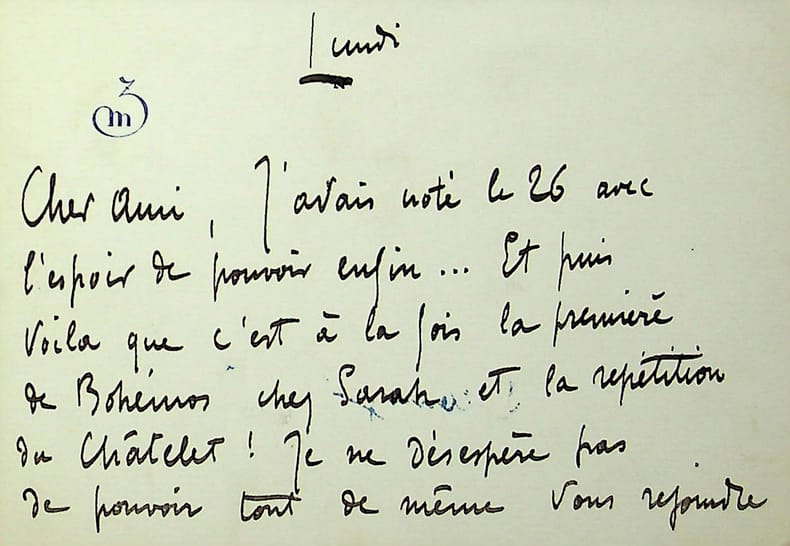 Lundi
mz
Cher Ami, J'avais noté le 26 avec
l'espoir de pouvoir enfin... Et puis
Voila que c'est à la fois la première
de Bohémos chez Sarah et la repétition
du Châtelet ! Je ne désespère pas
de pouvoir tout de même vous rejoindre